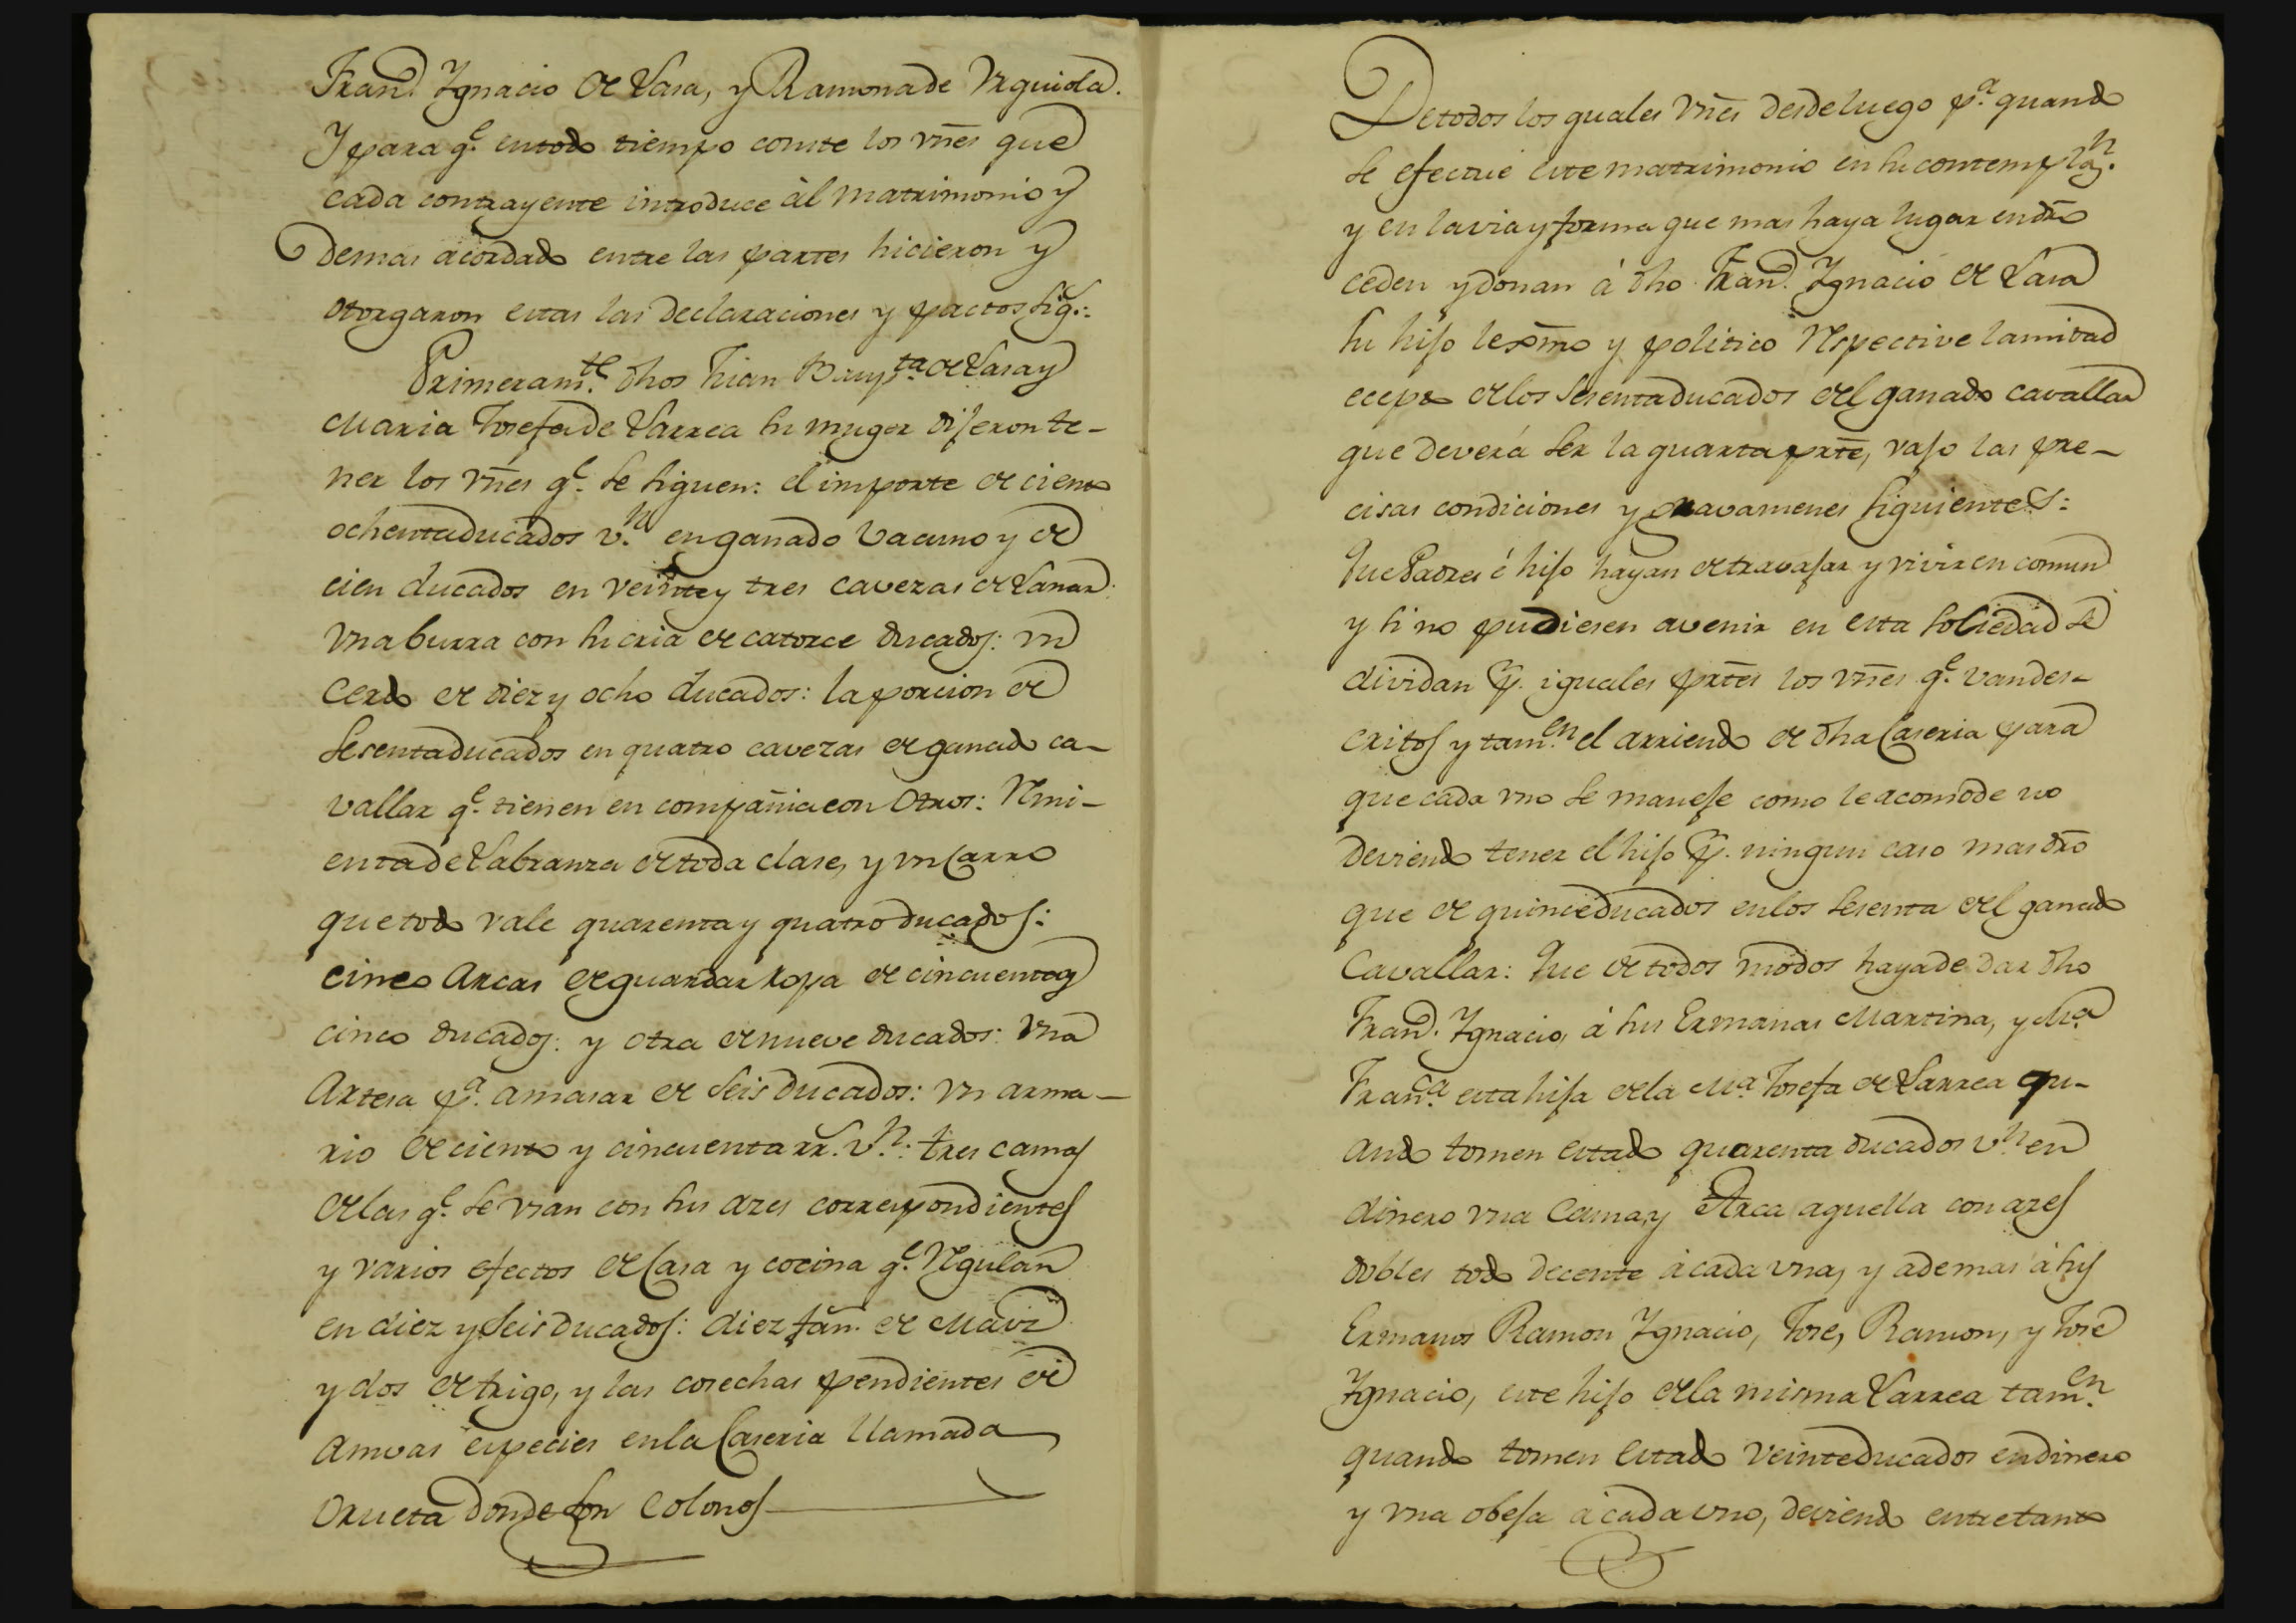 Fran.ᶜᵒ Ygnacio de Lasa, y Ramona de Urquiola.
Y para q.ᵉ en todo tiempo conste los vn̄es que
cada contrayente introduce àl matrimonio y
demas acordado entre las partes hicieron y
otorgaron estas las declaraciones y pactos sig.ˢ:
Primeram.ᵗᵉ dhos Juan Baup.ᵗᵃ de Lasa y
Maria Josefa de Larrea su muger dijeron te-
ner los vn̄es q.ᵉ se siguen: el importe de ciento
ochenta ducados v.ⁿ en ganado vacuno y de
cien ducados en veinte y tres cavezas de Lanar:
vna burra con su cria de catorce ducados: vn
Cerdo de diez y ocho ducados: la porcion de
sesenta ducados en quatro cavezas de ganado ca-
vallar q.ᵉ tienen en compañia con otros: Rmi-
enta de Labranza de toda clase, y vn Carro
que todo vale quarenta y quatro ducados:
cinco Arcas de guardar ropa de cincuenta y
cinco ducados: y otra de nueve ducados: vna
Artesa p.ᵃ amasar de seis ducados: vn arma-
rio de ciento y cincuenta rr.ˢ v.ⁿ: tres camas
de las q.ᵉ se vsan con sus azes correspondientes
y varios efectos de Casa y cocina q.ᵉ Regulan
en diez y seis ducados: diez fan.ˢ de Maiz
y dos de trigo, y las cosechas pendientes de
amvas especies en la Caseria llamada
Orueta donde son Colonos
De todos los quales vn̄es desde luego p.ᵃ quando
se efectue este matrimonio en su contempla.ⁿ
y en la via y forma que mas haya lugar en dr̄o
ceden y donan à dho Fran.ᶜᵒ Ygnacio de Lasa
su hijo lexm̄o y politico Respective la mitad
ecepto de los sesenta ducados del ganado cavallar
que deverá ser la quarta prt̄e, vajo las pre-
cisas condiciones y gravamenes siguientes:
Que Padres é hijo hayan de travajar y vivir en comun
y si no pudiesen avenir en esta sociedad se
dividan p.ʳ iguales prt̄es los vn̄es q.ᵉ van des-
critos y tam.ᵉⁿ el arriendo de dha Caseria para
que cada vno se maneje como le acomode no
deviendo tener el hijo p.ʳ ningun caso mas dr̄o
que de quince ducados en los sesenta del ganado
Cavallar: Que de todos modos haya de dar dho
Fran.ᶜᵒ Ygnacio, á sus Ermanas Martina, y M.ᵃ
Fran.ᶜᵃ esta hija de la M.ᵃ Josefa de Larrea qu-
ando tomen estado quarenta ducados v.ⁿ en
dinero vna Cama, y Arca aquella con azes
dobles todo decente à cada vna, y ademas à sus
Ermanos Ramon Ygnacio, Jose, Ramon, y Jose
Ygnacio, este hijo de la misma Larrea tam.ᵉⁿ
quando tomen estado veinte ducados en dinero
y vna obeja à cada vno, deviendo entretanto